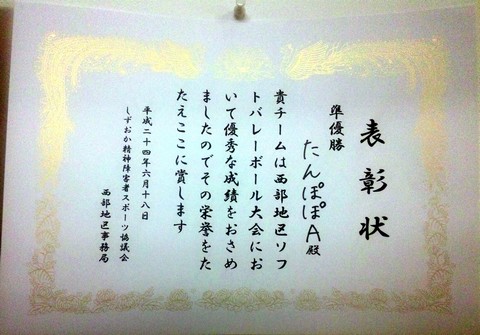 表彰状
準優勝
たんぽぽA殿
貴チームは西部地区ソフ
トバレーボール大会にお
いて優秀な成績をおさめ
ましたのでその栄誉をた
たえここに賞します
平成二十四年六月十八日
しずおか精神障害者スポーツ協議会
西部地区事務局